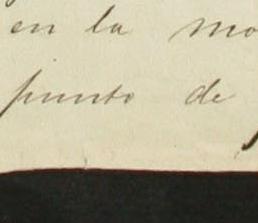 en la mo
punto de